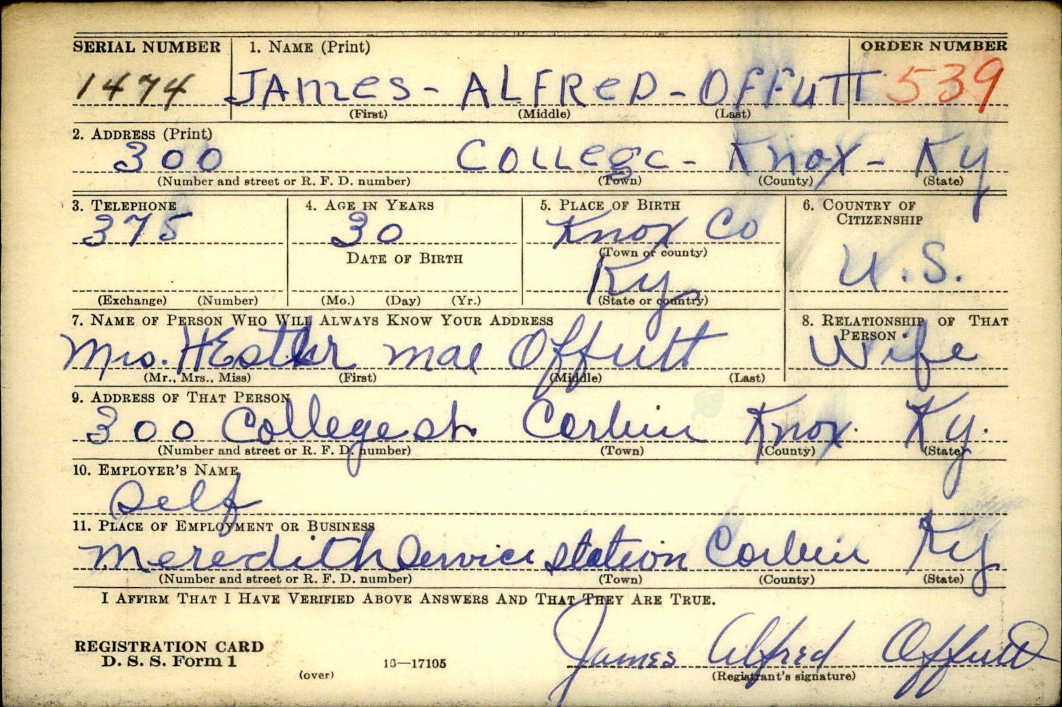 SERIAL NUMBER 1. NAME (Print) ORDER NUMBER
1474 JAMES - ALFRED - OFFUTT 539
(First) (Middle) (Last)
2. ADDRESS (Print)
300 COLLEGE - Knox - Ky
(Number and street or R. F. D. number) (Town) (County) (State)
3. TELEPHONE 4. AGE IN YEARS 5. PLACE OF BIRTH 6. COUNTRY OF CITIZENSHIP
375 30 Knox Co
DATE OF BIRTH (Town or county)
Ky U.S.
(Exchange) (Number) (Mo.) (Day) (Yr.) (State or country)
7. NAME OF PERSON WHO WILL ALWAYS KNOW YOUR ADDRESS 8. RELATIONSHIP OF THAT PERSON
Mrs. Mae Offutt Wife
(Mr., Mrs., Miss) (First) (Middle) (Last)
9. ADDRESS OF THAT PERSON
300 College st Corbin Knox. Ky.
(Number and street or R. F. D. number) (Town) (County) (State)
10. EMPLOYER'S NAME
Self
11. PLACE OF EMPLOYMENT OR BUSINESS
Meredith Service Station Corbin Ky
(Number and street or R. F. D. number) (Town) (County) (State)
I AFFIRM THAT I HAVE VERIFIED ABOVE ANSWERS AND THAT THEY ARE TRUE.
REGISTRATION CARD
D. S. S. Form 1 16—17105 James Alfred Offutt
(over) (Registrant's signature)